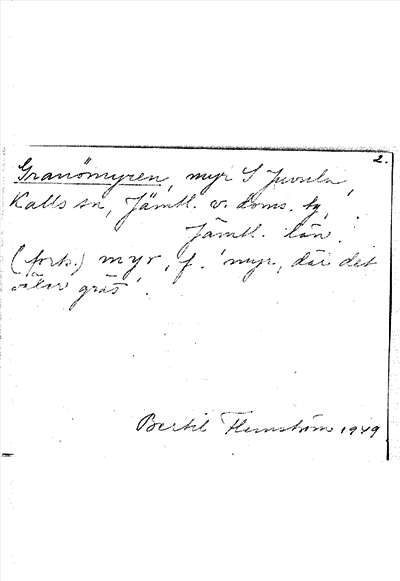 2.
Granömyren, myr S Juvuln,
Kalls sn, Jämtl. v. doms.
Jämtl. län.
(forts.) myr, f. 'myr, där det
växer gräs'.
Bertil Flemström 1949